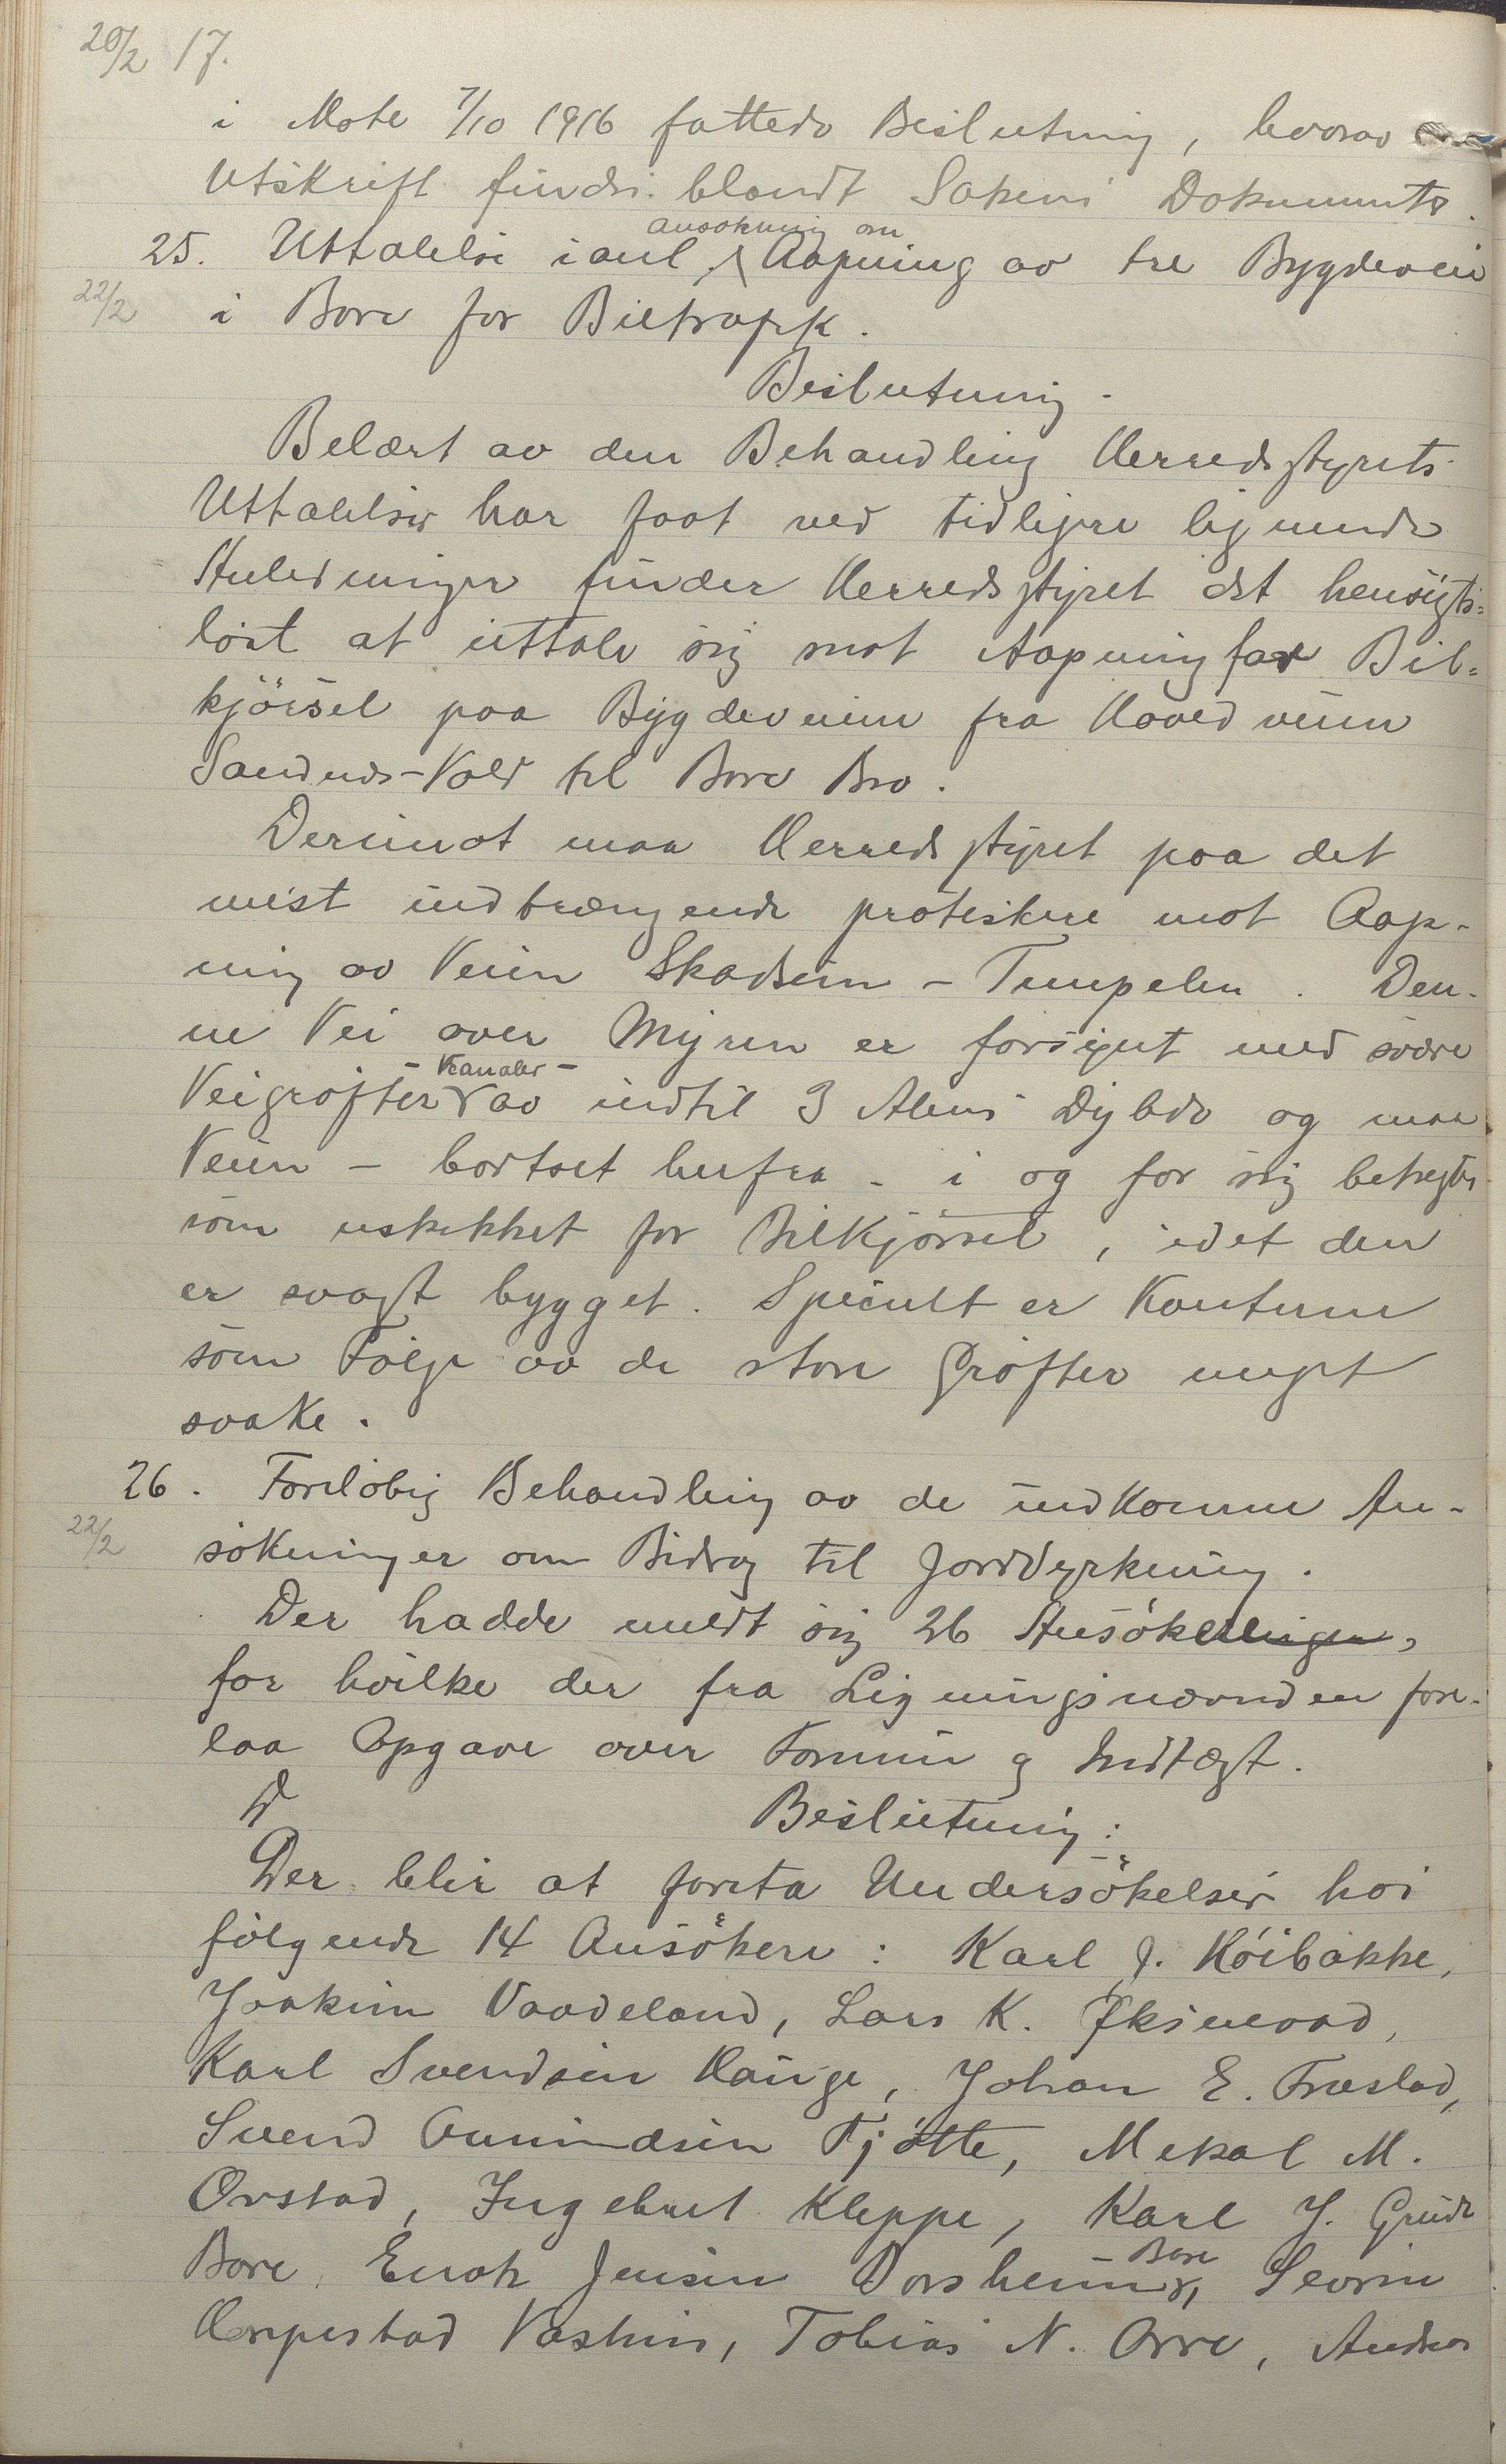 20/2 17.
i Møte 7/10 1916 fattede Beslutning, hvorav
Utskrift findes blandt Sakens Dokumenter.
ansøkning om
25. Uttalelse i anl. Aapning av tre Bygdeveie
22/2 i Bore for Biltrafik.
Beslutning.
Belært av den Behandling Herredsstyrets
Uttalelser har faat ved tidligere lignende
Anledninger finder Herredsstyret det hensigts=
löst at uttale sig mot Aapning for Bil=
kjörsel paa Bygdeveien fra Hovedveien
Sandnes-Vold til Bore Bro.
Derimot maa Herredsstyret paa det
mest indtrængende protestere mot Aap-
ning av Veien Skadsem - Tempelen. Den-
ne Vei over Myren er forsynt med svære
- Kanaler -
Veigrøfter av indtil 3 Alens Dybde og maa
Veien - bortset herfra - i og for sig betragtes
som uskikket for Bilkjørsel, idet den
er svagt bygget. Specielt er Kantene
som Følge av de store Grøfter meget
svake.
26. Foreløbig Behandling av de indkomne An-
22/2 søkninger om Bidrag til Jorddyrkning.
Der hadde meldt sig 26 Ansøkere,
for hvilke der fra Ligningsnævnden fore-
laa Opgave over Formue og Indtægt.
D
Beslutning:
Der blir at foreta Undersøkelser hos
følgende 14 Ansøkere: Karl J. Höibakke,
Joakim Vaadeland, Lars K. Öksnevad,
Karl Svendsen Hauge, Johan E. Friestad,
Svend Aanundsen Tjøtte, Mikal M.
Orstad, Ingebret Kleppe, Karl J. Grude
- Bore
Bore, Enok Jensen Dorsheim, Sevrin
Erpestad Vasshus, Tobias N. Orre, Andreas